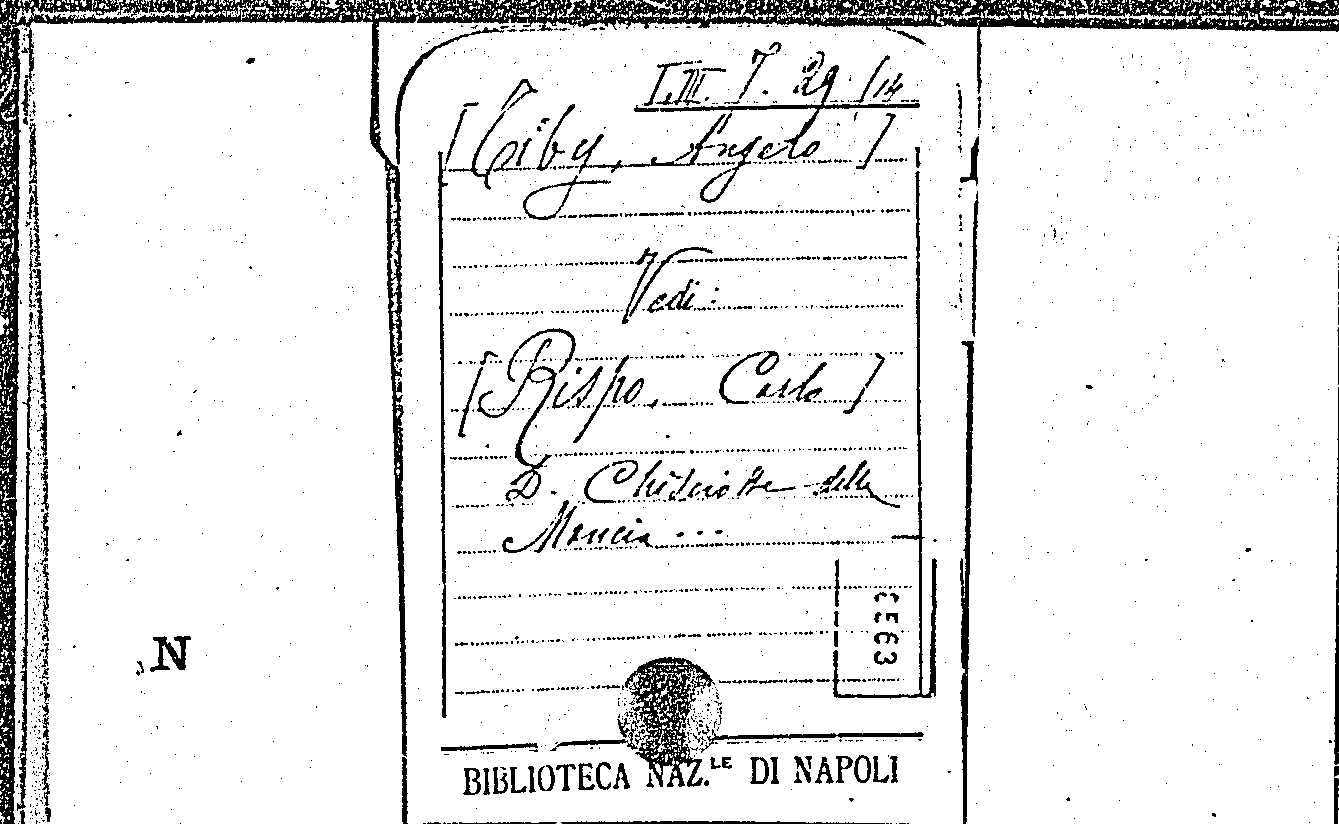 I.III. 7. 29 /14
[Ciby, Angelo]
Vedi:
[Rispo, Carlo]
D. Chisciotte della
Mancia ...
N
BIBLIOTECA NAZ.LE DI NAPOLI